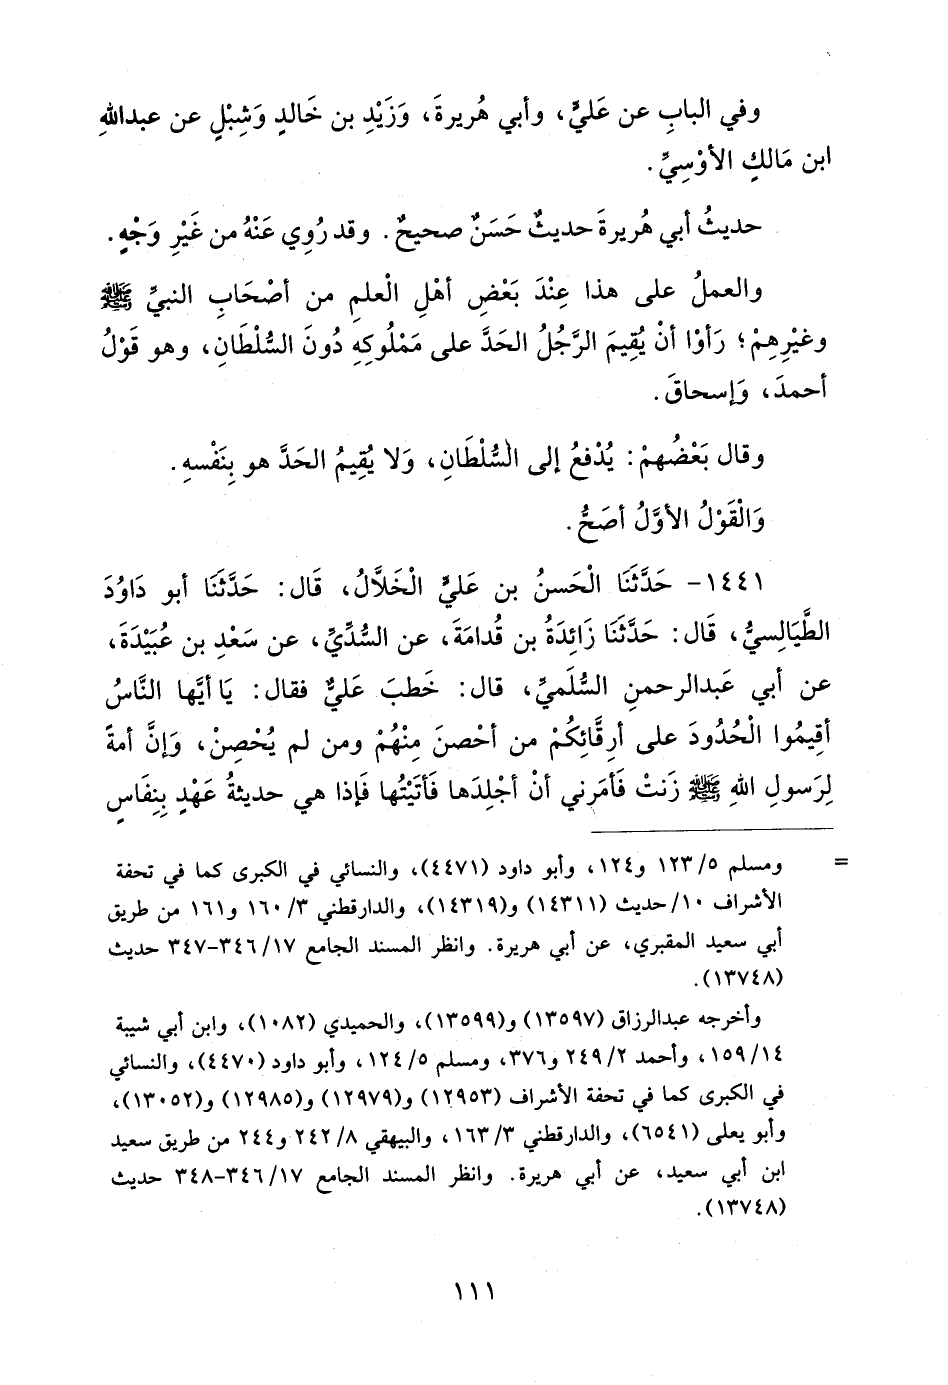 وفي البابِ عن عَليٍّ، وأبي هُريرةَ، وَزَيْدِ بن خَالدٍ وَشِبْلٍ عن عبداللهِ
ابن مَالكٍ الأوْسِيِّ.
حديثُ أبي هُريرةَ حديثٌ حَسَنٌ صحيحٌ. وقد رُوِي عَنْهُ من غَيْرِ وَجْهٍ.
والعملُ على هذا عِنْدَ بَعْضِ أهْلِ الْعلمِ من أصْحَابِ النبيِّ ﷺ
وغيْرِهِمْ؛ رَأوْا أنْ يُقِيمَ الرَّجُلُ الحَدَّ على مَمْلُوكِهِ دُونَ السُّلْطَانِ، وهو قَوْلُ
أحمدَ، وَإسحاقَ.
وقال بَعْضُهمْ: يُدْفعُ إلى السُّلْطَانِ، وَلا يُقِيمُ الحَدَّ هو بِنَفْسهِ.
وَالْقَوْلُ الأوَّلُ أصَحُّ.
١٤٤١- حَدَّثَنَا الْحَسنُ بن عَليٍّ الْخَلَّالُ، قَال: حَدَّثَنَا أبو دَاوُدَ
الطَّيَالِسيُّ، قَال: حَدَّثَنَا زَائِدَةُ بن قُدامَةَ، عن السُّدِّيِّ، عن سَعْدِ بن عُبَيْدَةَ،
عن أبي عَبدالرحمنِ السُّلَميِّ، قال: خَطبَ عَليٌّ فقال: يَا أيَّها النَّاسُ
أقِيمُوا الْحُدُودَ على أرِقَّائِكُمْ من أحْصنَ مِنْهُمْ ومن لم يُحْصِنْ، وَإنَّ أمةً
لِرَسولِ اللهِ ﷺ زَنتْ فَأمَرني أنْ أجْلِدَها فَأتَيْتُها فَإذا هي حديثةُ عَهْدٍ بِنِفَاسٍ
= ومسلم ٥/ ١٢٣ و١٢٤، وأبو داود (٤٤٧١)، والنسائي في الكبرى كما في تحفة
الأشراف ١٠/ حديث (١٤٣١١) و(١٤٣١٩)، والدارقطني ٣/ ١٦٠ و١٦١ من طريق
أبي سعيد المقبري، عن أبي هريرة. وانظر المسند الجامع ١٧/ ٣٤٦-٣٤٧ حديث
(١٣٧٤٨).
وأخرجه عبدالرزاق (١٣٥٩٧) و(١٣٥٩٩)، والحميدي (١٠٨٢)، وابن أبي شيبة
١٤/ ١٥٩، وأحمد ٢/ ٢٤٩ و٣٧٦، ومسلم ٥/ ١٢٤، وأبو داود (٤٤٧٠)، والنسائي
في الكبرى كما في تحفة الأشراف (١٢٩٥٣) و(١٢٩٧٩) و(١٢٩٨٥) و(١٣٠٥٢)،
وأبو يعلى (٦٥٤١)، والدارقطني ٣/ ١٦٣، والبيهقي ٨/ ٢٤٢ و٢٤٤ من طريق سعيد
ابن أبي سعيد، عن أبي هريرة. وانظر المسند الجامع ١٧/ ٣٤٦-٣٤٨ حديث
(١٣٧٤٨).
١١١